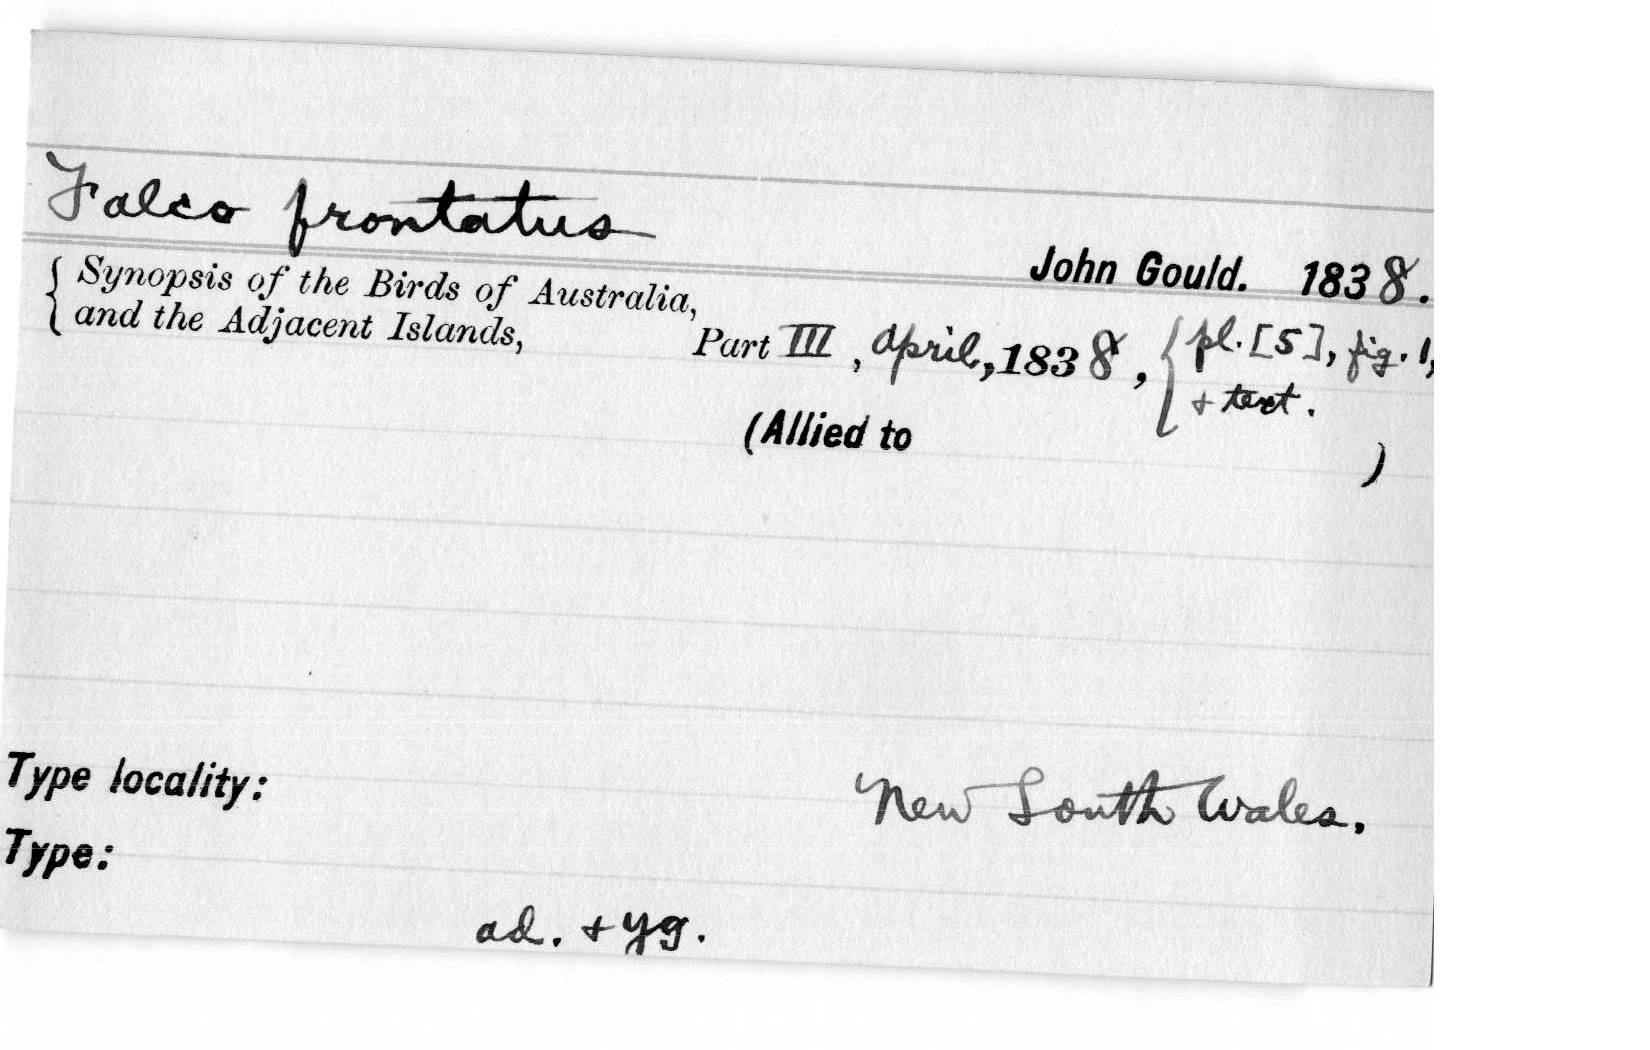 Falco frontatus
John Gould. 1838.
{ Synopsis of the Birds of Australia,
and the Adjacent Islands,
Part III, April, 1838, { pl. [5], fig. 1,
+ text.
(Allied to )
Type locality: New South Wales.
Type:
ad. + yg.